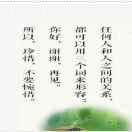 任何人和人之间的关系，
都可以用一个词来形容。
你好，谢谢，再见。
所以，珍惜，不要惋惜。